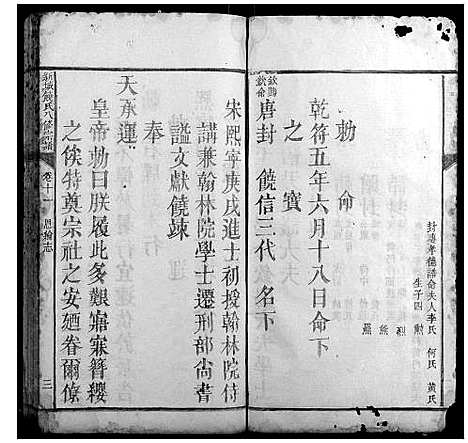 封越孝德誥命夫人李氏 何氏 黃氏
生子四 勳 烈 熊 羆
勅 命
乾符五年六月十八日命下
之 寶
欽賜
欽命
唐封 饒信三代 名下
宋熙寧庚戌進士初授翰林院侍
講兼翰林院學士遷刑部尚書
謚文獻饒竦
奉
天承運
皇帝勅曰朕履此多艱寤寐簪纓
之俟特奠宗社之安廼眷爾僚
饒氏八修宗譜
卷十一 恩綸志
三